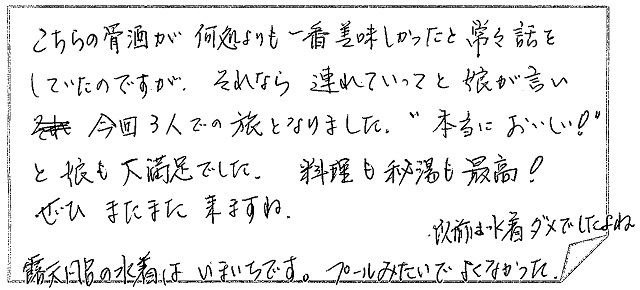 こちらの骨酒が何処よりも一番美味しかったと常々話を
していたのですが、それなら連れていってと娘が言い
今回3人での旅となりました。"本当においしい!"
と娘も大満足でした。料理も秘湯も最高!
ぜひまたまた来ますね。
以前は水着ダメでしたよね
露天風呂の水着はいまいちです。プールみたいでよくなかった。